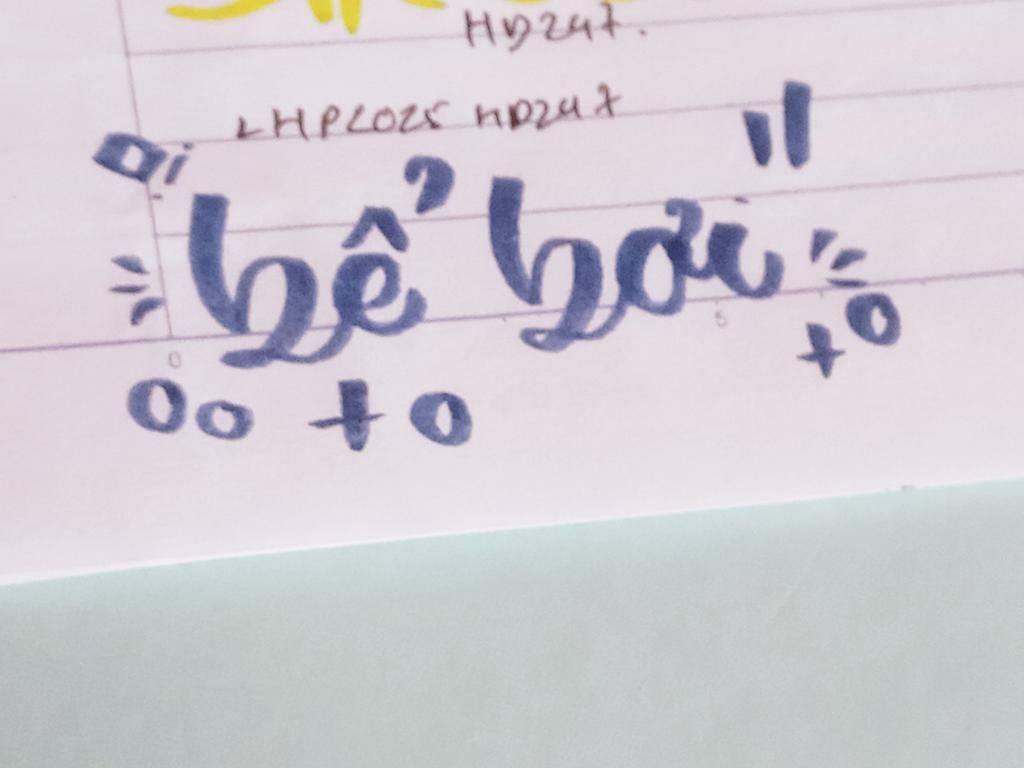 HD247.
LHP2025 HD247
bể bơi